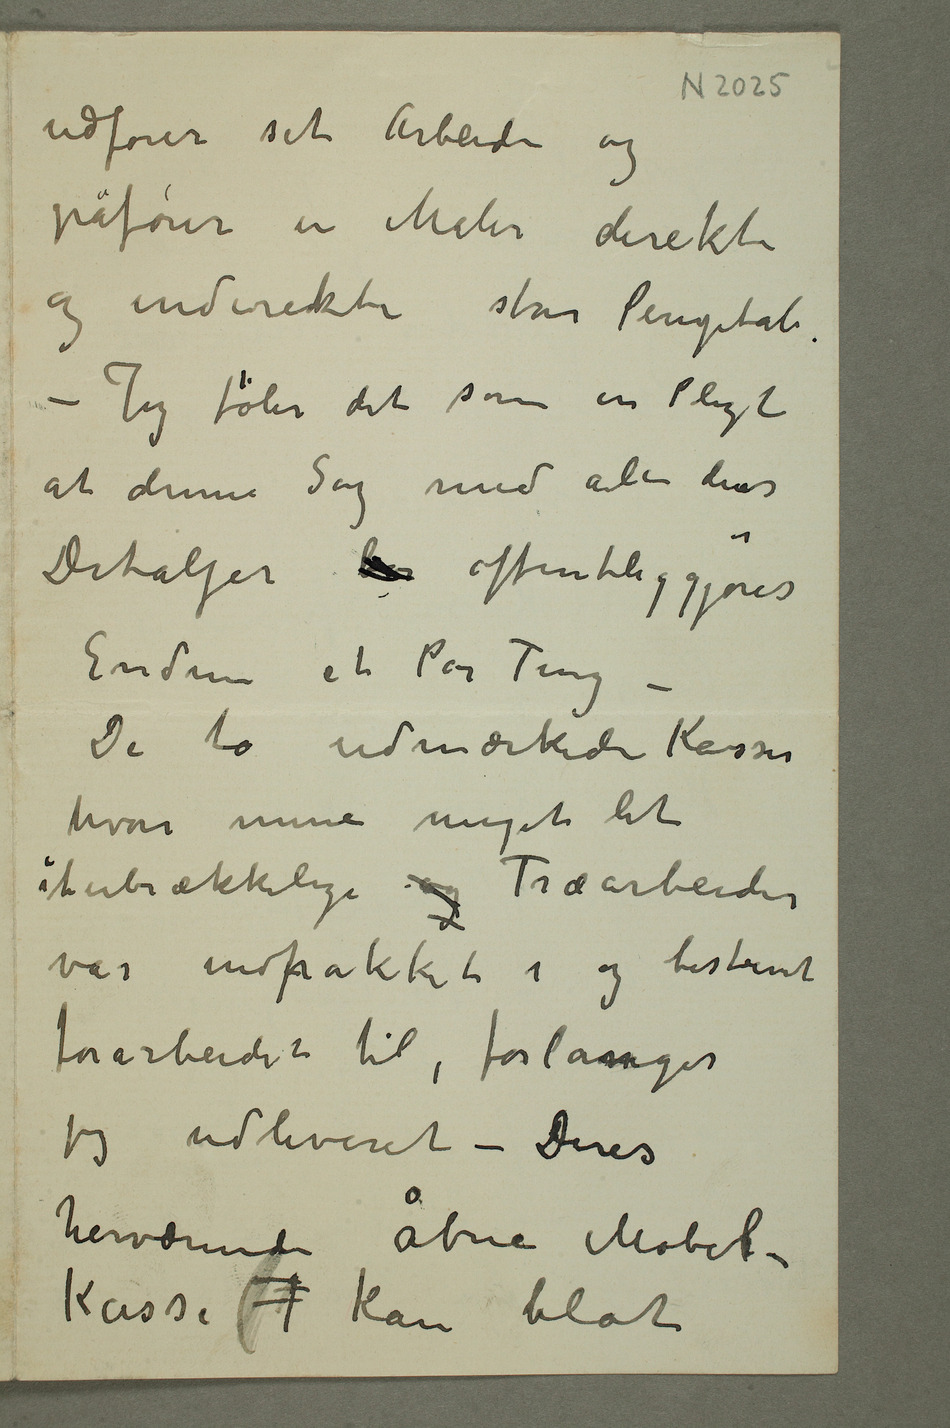 N 2025
udfører sit Arbeide og
påfører en Maler direkte
og indirekte stor Pengetab.
– Jeg føler det som en Pligt
at denne Sag med alle dens
Detaljer offentliggjøres
Endnu et Par Ting –
De to udmærkede Kasser
hvori mine meget let
itubrækkelige og Træarbeider
var indpakket i og bestemt
forarbeidet til, forlanger
jeg udleveret – Deres
herværende åbne Møbel-
Kasse kan blot